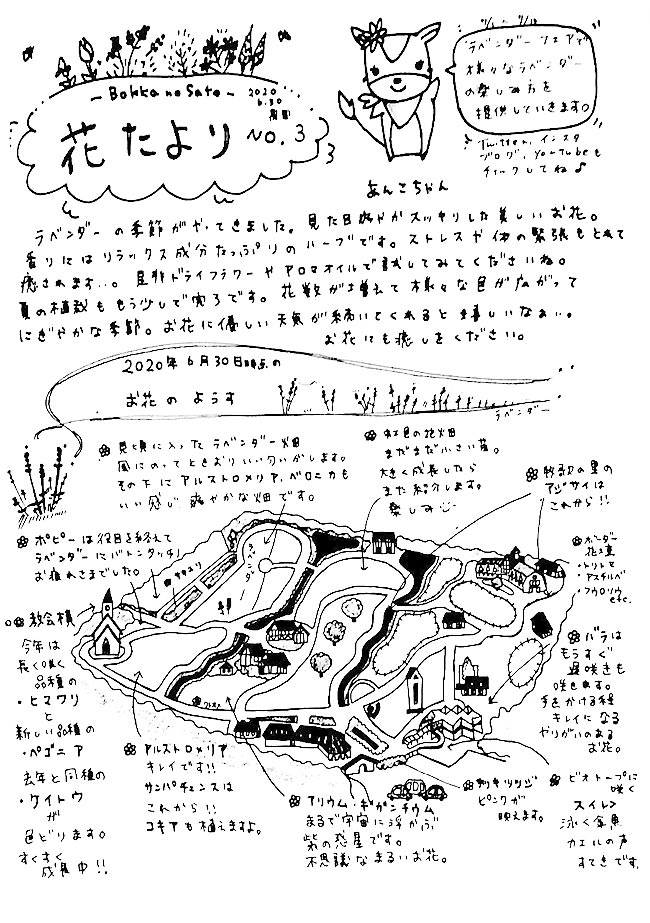 ~ Bokka no Sato ~
2020
6.30
花たより No.3
ラベンダーフェアで
様々なラベンダー
の楽しみ方を
提供していきます。
Twitter、インスタ
ブログ、YouTubeも
チェックしてね♪
あんこちゃん
ラベンダーの季節がやってきました。見た目爽やかスッキリした美しいお花。
香りにはリラックス成分たっぷりのハーブです。ストレスや体の緊張もとれて
癒されます…。是非ドライフラワーやアロマオイルで試してみてくださいね。
夏の植栽ももう少しで完了です。花数が増えて様々な色が広がって
にぎやかな季節。お花に優しい天気が続いてくれると嬉しいなぁ。
お花にも癒しをください。
2020年6月30日時点の
お花のようす
ラベンダー
見頃に入ったラベンダー畑
風にのってときおりいい匂いがします。
その下にアルストロメリア、ベロニカも
いい感じ 爽やかな畑です。
虹色の花畑
まだまだ小さい苗。
大きく成長したら
また紹介します。
楽しみ
牧歌の里の
アジサイは
これから!!
ポピーは役目を終えて
ラベンダーにバトンタッチ!
お疲れさまでした。
ラベンダー
ボーダー
花壇
・アスチルベ
・フウロソウ
etc.
教会横
今年は
長く咲く
品種の
・ヒマワリ
と
新しい品種の
・ベゴニア
去年と同種の
・ケイトウ
が
色どります。
すくすく
成長中!!
バラは
もうすぐ
遅咲きも
咲きます。
手をかける程
キレイになる
やりがいのある
お花。
アルストロメリア
キレイです!!
サンパチェンスは
これから!!
コキアも植えますよ。
アリウム・ギガンチウム
まるで宇宙に浮かぶ
紫の惑星です。
不思議なまるいお花。
サツキツツジ
ピンクが
映えます。
ビオトープに
咲く
スイレン
泳ぐ金魚
カエルの声
すてきです。